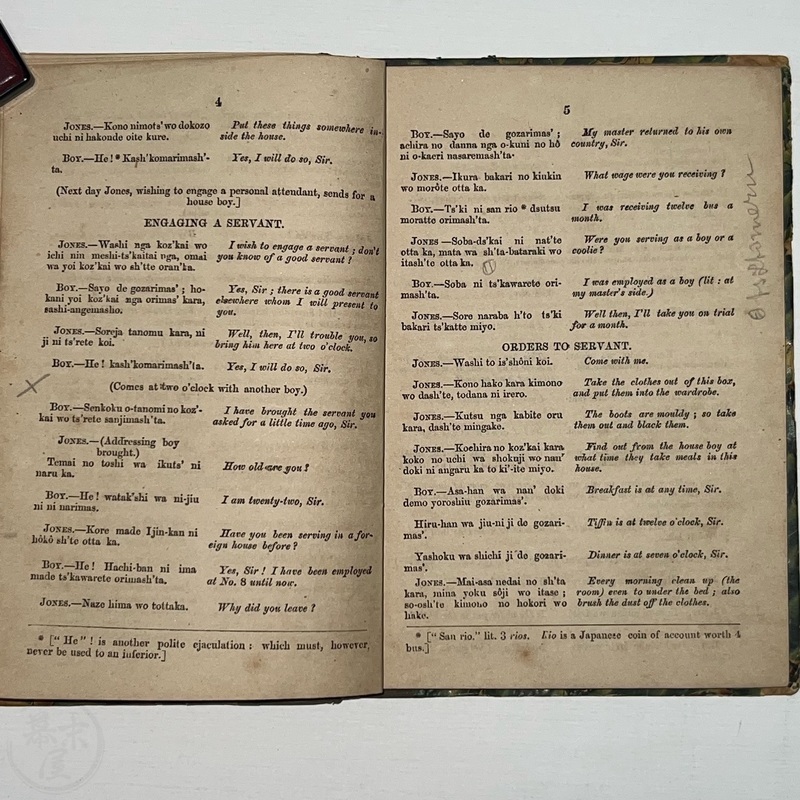 4
JONES.—Kono nimots' wo dokozo
uchi ni hakonde oite kure.
Put these things somewhere in-
side the house.
BOY.—He! * Kash'komarimash'-
ta.
Yes, I will do so, Sir.
(Next day Jones, wishing to engage a personal attendant, sends for a
house boy.]
ENGAGING A SERVANT.
JONES.—Washi nga koz'kai wo
ichi nin meshi-ts'kaitai nga, omai
wa yoi koz'kai wo sh'tte oran'ka.
I wish to engage a servant; don't
you know of a good servant?
BOY.—Sayo de gozarimas'; ho-
kani yoi koz'kai nga orimas' kara,
sashi-angemasho.
Yes, Sir; there is a good servant
elsewhere whom I will present to
you.
JONES.—Soreja tanomu kara, ni
ji ni ts'rete koi.
Well, then, I'll trouble you, so
bring him here at two o'clock.
BOY.—He! kash'komarimash'ta.
Yes, I will do so, Sir.
(Comes at two o'clock with another boy.)
BOY.—Senkoku o-tanomi no koz'-
kai wo ts'rete sanjimash'ta.
I have brought the servant you
asked for a little time ago, Sir.
JONES.—(Addressing boy
brought.)
Temai no toshi wa ikuts' ni
naru ka.
How old are you?
BOY.—He! watak'shi wa ni-jiu
ni ni narimas.
I am twenty-two, Sir.
JONES.—Kore made Ijin-kan ni
hôkô sh'te otta ka.
Have you been serving in a for-
eign house before?
BOY.—He! Hachi-ban ni ima
made ts'kawarete orimash'ta.
Yes, Sir! I have been employed
at No. 8 until now.
JONES.—Naze hima wo tottaka.
Why did you leave?
* ["He"! is another polite ejaculation: which must, however,
never be used to an inferior.]
5
BOY.—Sayo de gozarimas';
achira no danna nga o-kuni no hô
ni o-kaeri nasaremash'ta.
My master returned to his own
country, Sir.
JONES.—Ikura bakari no kiukin
wo morôte otta ka.
What wage were you receiving?
BOY.—Ts'ki ni san rio * dsutsu
moratte orimash'ta.
I was receiving twelve bus a
month.
JONES—Soba-ds'kai ni nat'te
otta ka, mata wa sh'ta-bataraki wo
itash'te otta ka.
Were you serving as a boy or a
coolie?
BOY.—Soba ni ts'kawarete ori-
mash'ta.
I was employed as a boy (lit: at
my master's side.)
JONES.—Sore naraba h'to ts'ki
bakari ts'katte miyo.
Well then, I'll take you on trial
for a month.
ORDERS TO SERVANT.
JONES.—Washi to is'shôni koi.
Come with me.
JONES.—Kono hako kara kimono
wo dash'te, todana ni irero.
Take the clothes out of this box,
and put them into the wardrobe.
JONES.—Kutsu nga kabite oru
kara, dash'te mingake.
The boots are mouldy; so take
them out and black them.
JONES.—Kochira no koz'kai kara
koko no uchi wa shokuji wo nan'
doki ni angaru ka to ki'-ite miyo.
Find out from the house boy at
what time they take meals in this
house.
BOY.—Asa-han wa nan' doki
demo yoroshiu gozarimas'.
Breakfast is at any time, Sir.
Hiru-han wa jiu-ni ji de gozari-
mas'.
Tiffin is at twelve o'clock, Sir.
Yashoku wa shichi ji de gozari-
mas'.
Dinner is at seven o'clock, Sir.
JONES.—Mai-asa nedai no sh'ta
kara, mina yoku sôji wo itase;
so-osh'te kimono no hokori wo
hake.
Every morning clean up (the
room) even to under the bed; also
brush the dust off the clothes.
* ["San rio." lit. 3 rios. Rio is a Japanese coin of account worth 4
bus.]